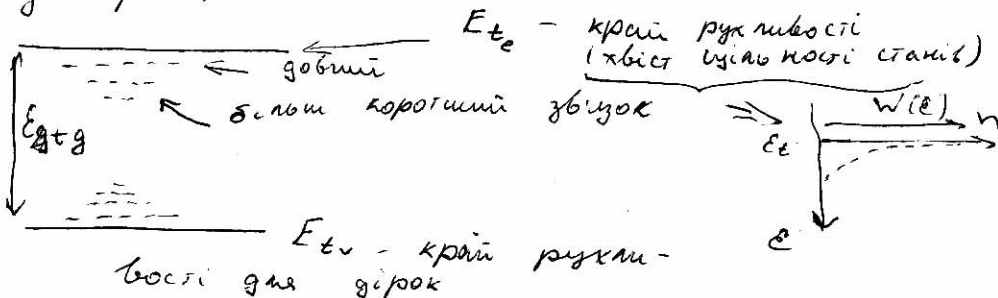 E_te – край рухливості
(хвіст щільності станів)
довгий
більш коротший звязок
W(ε)
n
ε_t
ε
E_tv – край рухли-
вості для дірок